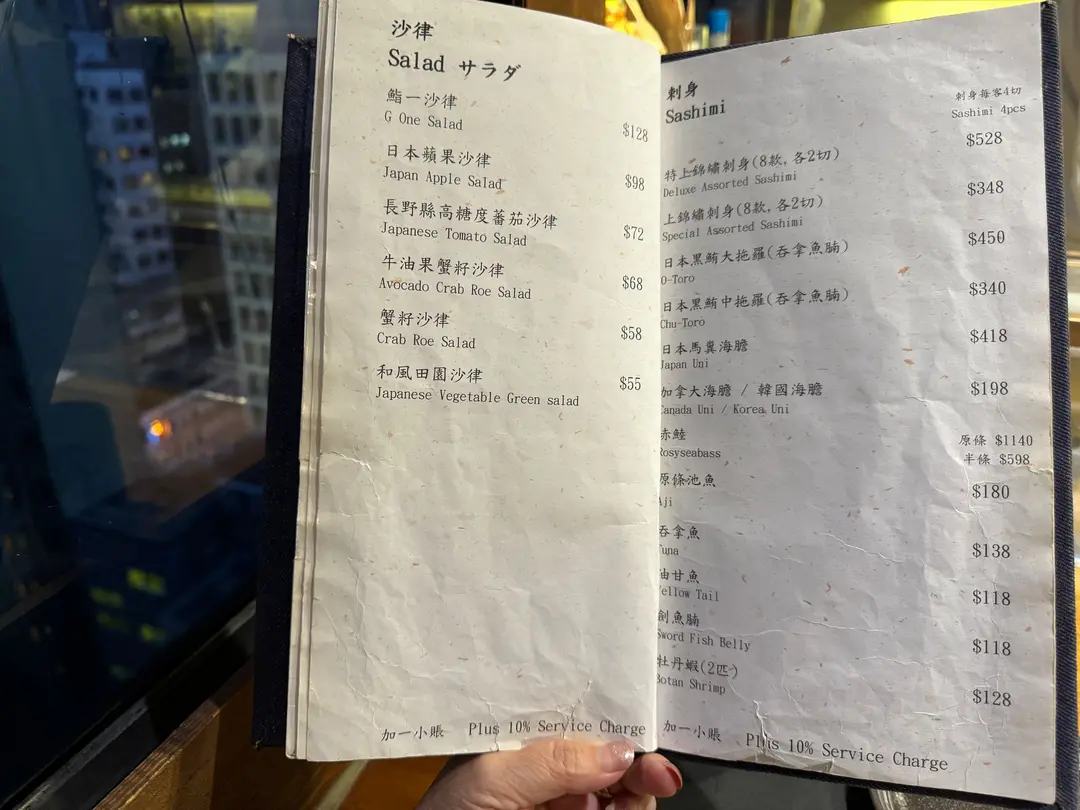 沙律
Salad サラダ
鮨一沙律
G One Salad
$128
日本蘋果沙律
Japan Apple Salad
$98
長野縣高糖度蕃茄沙律
Japanese Tomato Salad
$72
牛油果蟹籽沙律
Avocado Crab Roe Salad
$68
蟹籽沙律
Crab Roe Salad
$58
和風田園沙律
Japanese Vegetable Green salad
$55
加一小賬 Plus 10% Service Charge
刺身
Sashimi
刺身每客4切
Sashimi 4pcs
特上錦繡刺身(8款,各2切)
Deluxe Assorted Sashimi
$528
上錦繡刺身(8款,各2切)
Special Assorted Sashimi
$348
日本黑鮪大拖羅(吞拿魚腩)
O-Toro
$450
日本黑鮪中拖羅(吞拿魚腩)
Chu-Toro
$340
日本馬糞海膽
Japan Uni
$418
加拿大海膽 / 韓國海膽
Canada Uni / Korea Uni
$198
赤鯥
Rosyseabass
原條 $1140
半條 $598
原條池魚
Aji
$180
吞拿魚
Tuna
$138
油甘魚
Yellow Tail
$118
劍魚腩
Sword Fish Belly
$118
牡丹蝦(2匹)
Botan Shrimp
$128
加一小賬 Plus 10% Service Charge